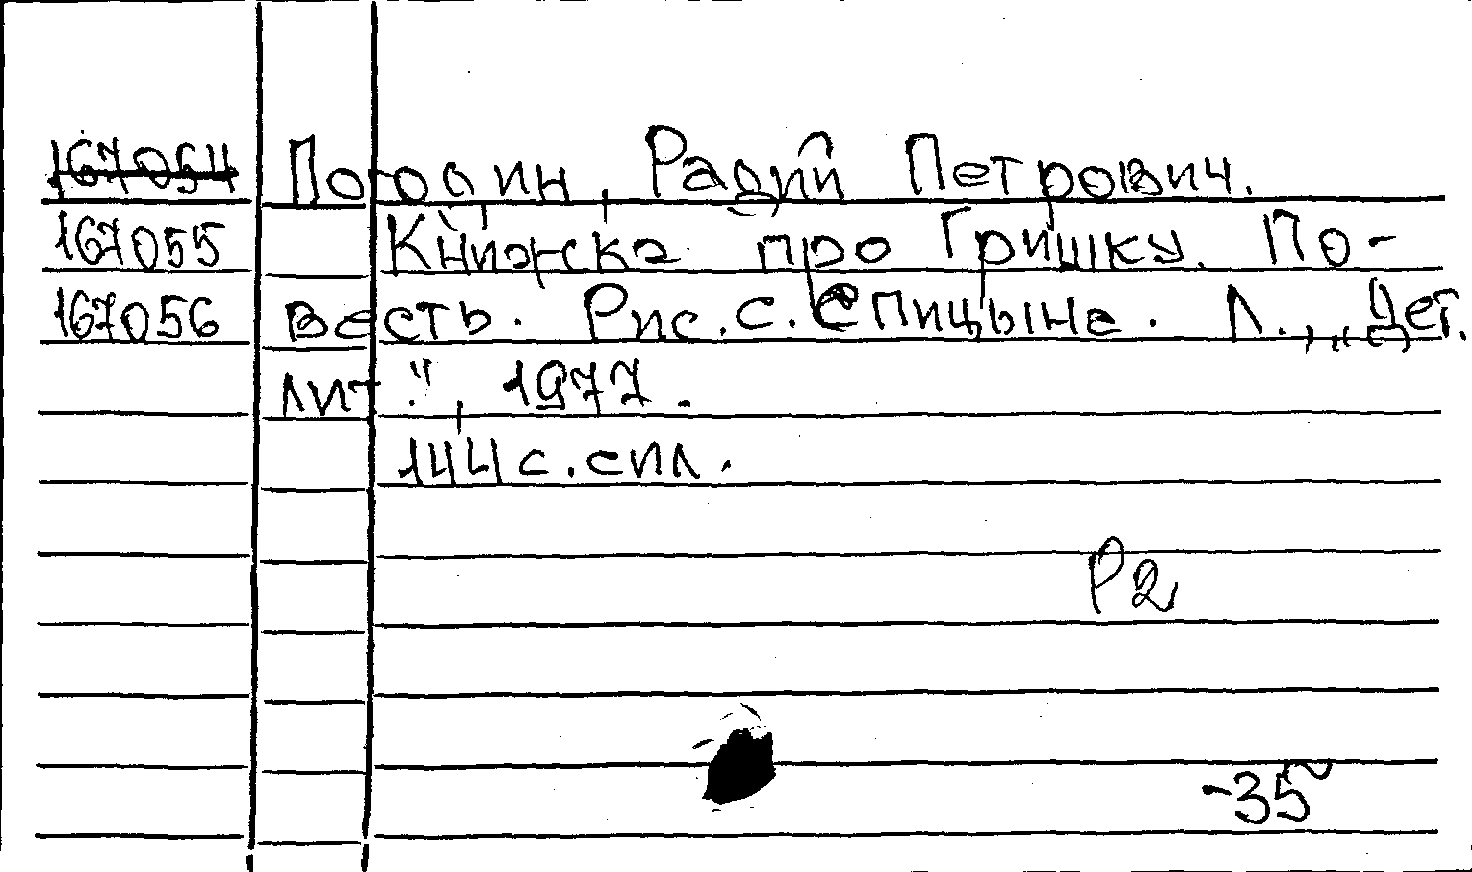 167054 Погодин, Радий Петрович.
167055 Книжка про Гришку. По-
167056 весть. Рис. С. Спицына. Л., „Дет.
лит.", 1977.
144 с. с ил.
Р2
-35